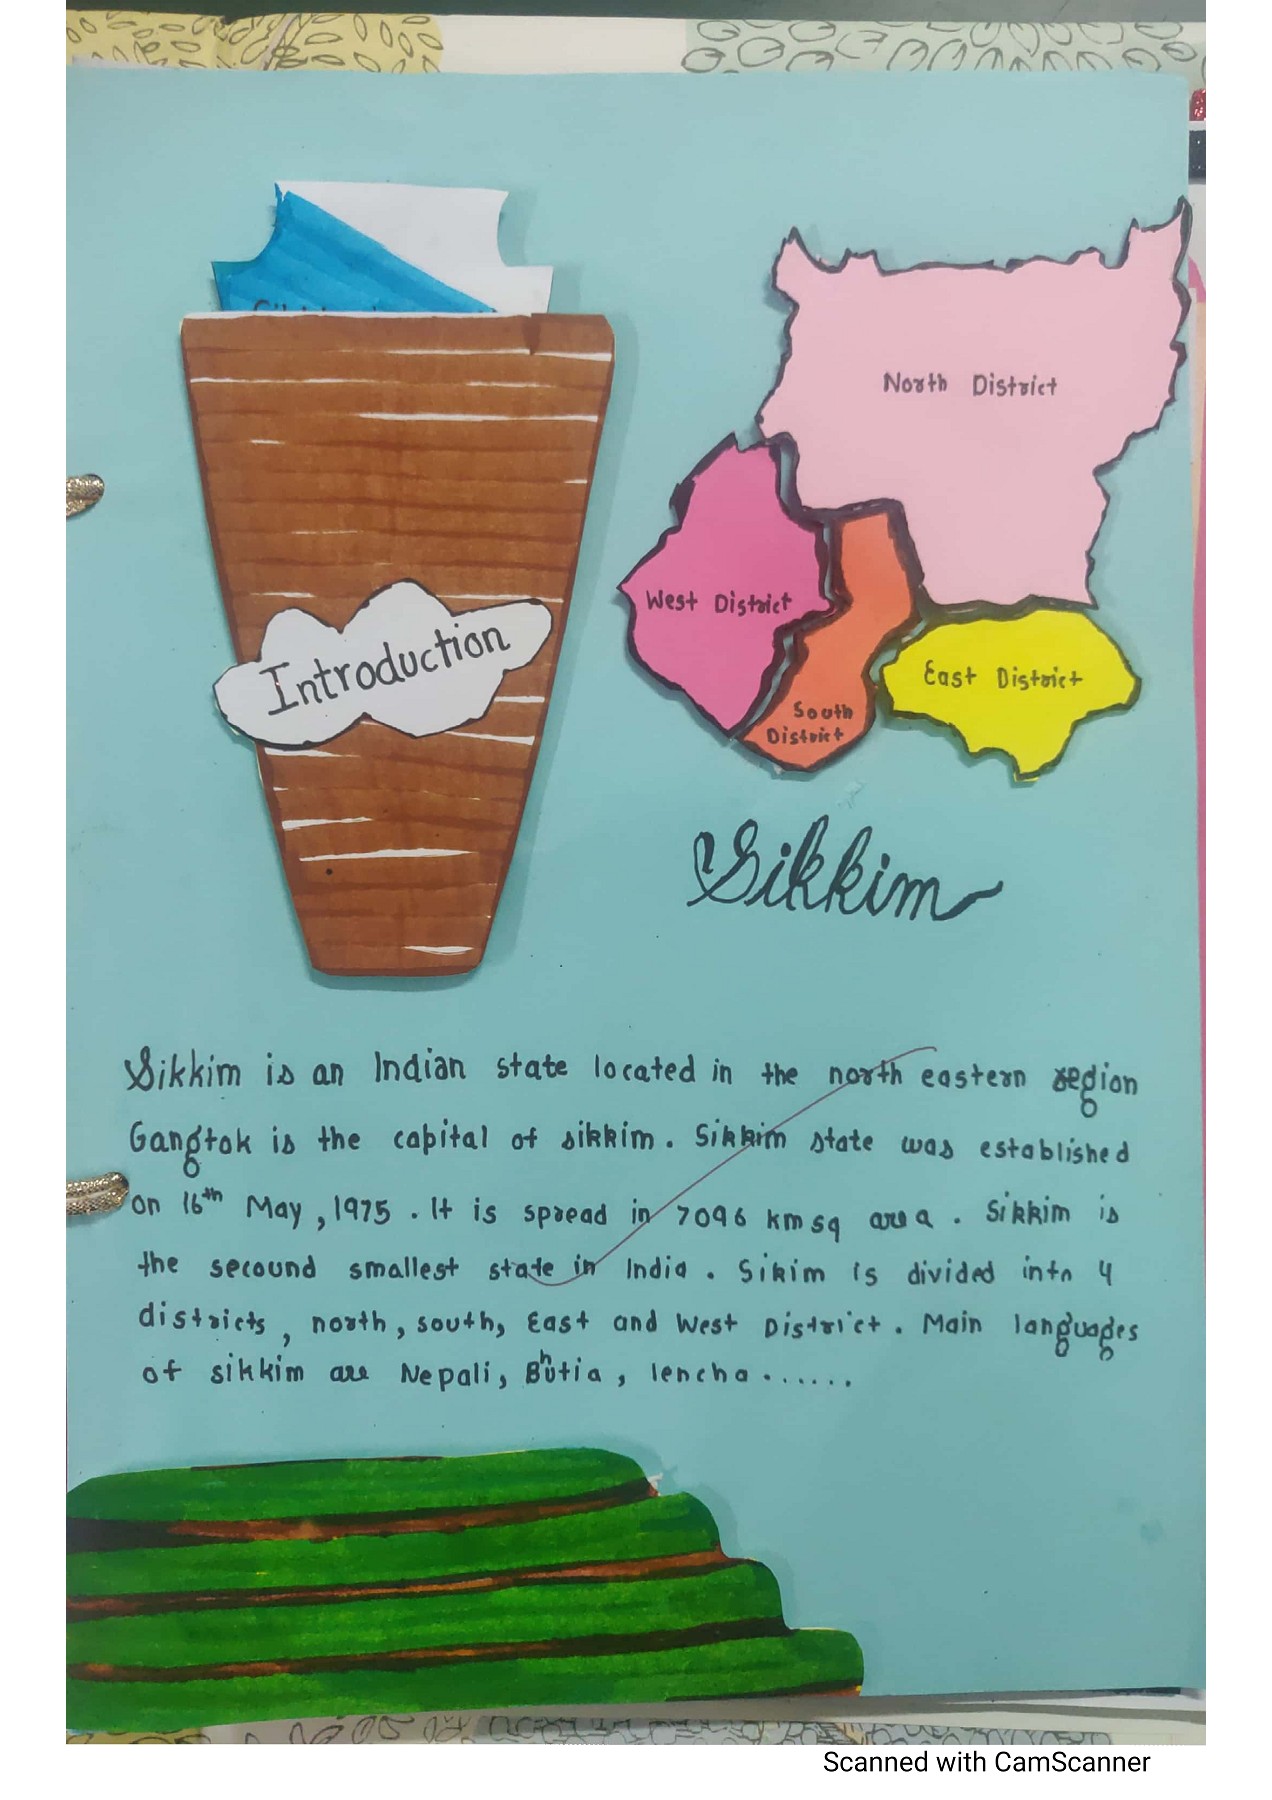 Introduction
North District
West District
South
District
East District
Sikkim
Sikkim is an Indian state located in the north eastern region
Gangtok is the capital of sikkim. Sikkim state was established
on 16th May, 1975. It is spread in 7096 km sq area. Sikkim is
the secound smallest state in India. Sikim is divided into 4
districts, north, south, East and West District. Main languages
of sikkim are Nepali, Bhutia, lencha.......
Scanned with CamScanner